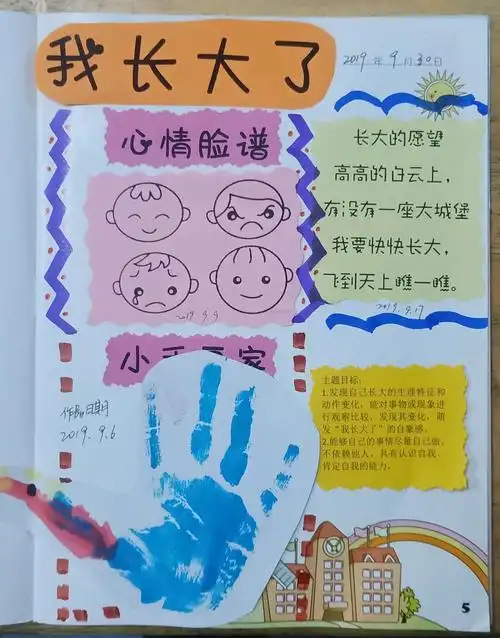 我长大了
2019年9月30日
心情脸谱
长大的愿望
高高的白云上，
有没有一座大城堡
我要快快长大，
飞到天上瞧一瞧。
2019.9.9
2019.9.17
小手
家
作品日期
2019.9.6
主题目标：
1.发现自己长大的生理特征和
动作变化，能对事物或现象进
行观察比较，发现其变化，萌
发“我长大了”的自豪感。
2.能够自己的事情尽量自己做，
不依赖他人，具有认识自我、
肯定自我的能力。
5